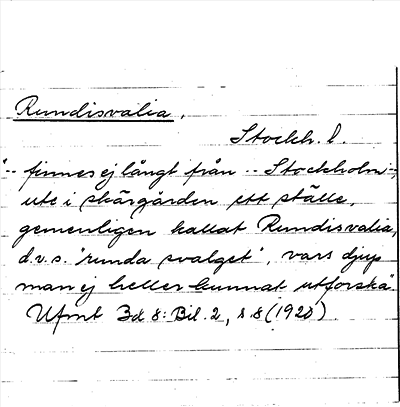 Rundisvalia.
Stockh. l.
"-- finnes ej långt från -- Stockholm --,
ute i skärgården ett ställe,
gemenligen kallat Rundisvalia,
d.v.s. "runda svalget", vars djup
man ej heller kunnat utforska".
Ufmt Bd 8: Bil. 2, s 8 (1928)